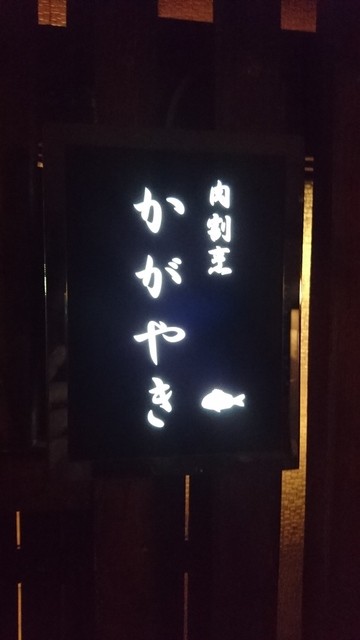 肉割烹
かがやき